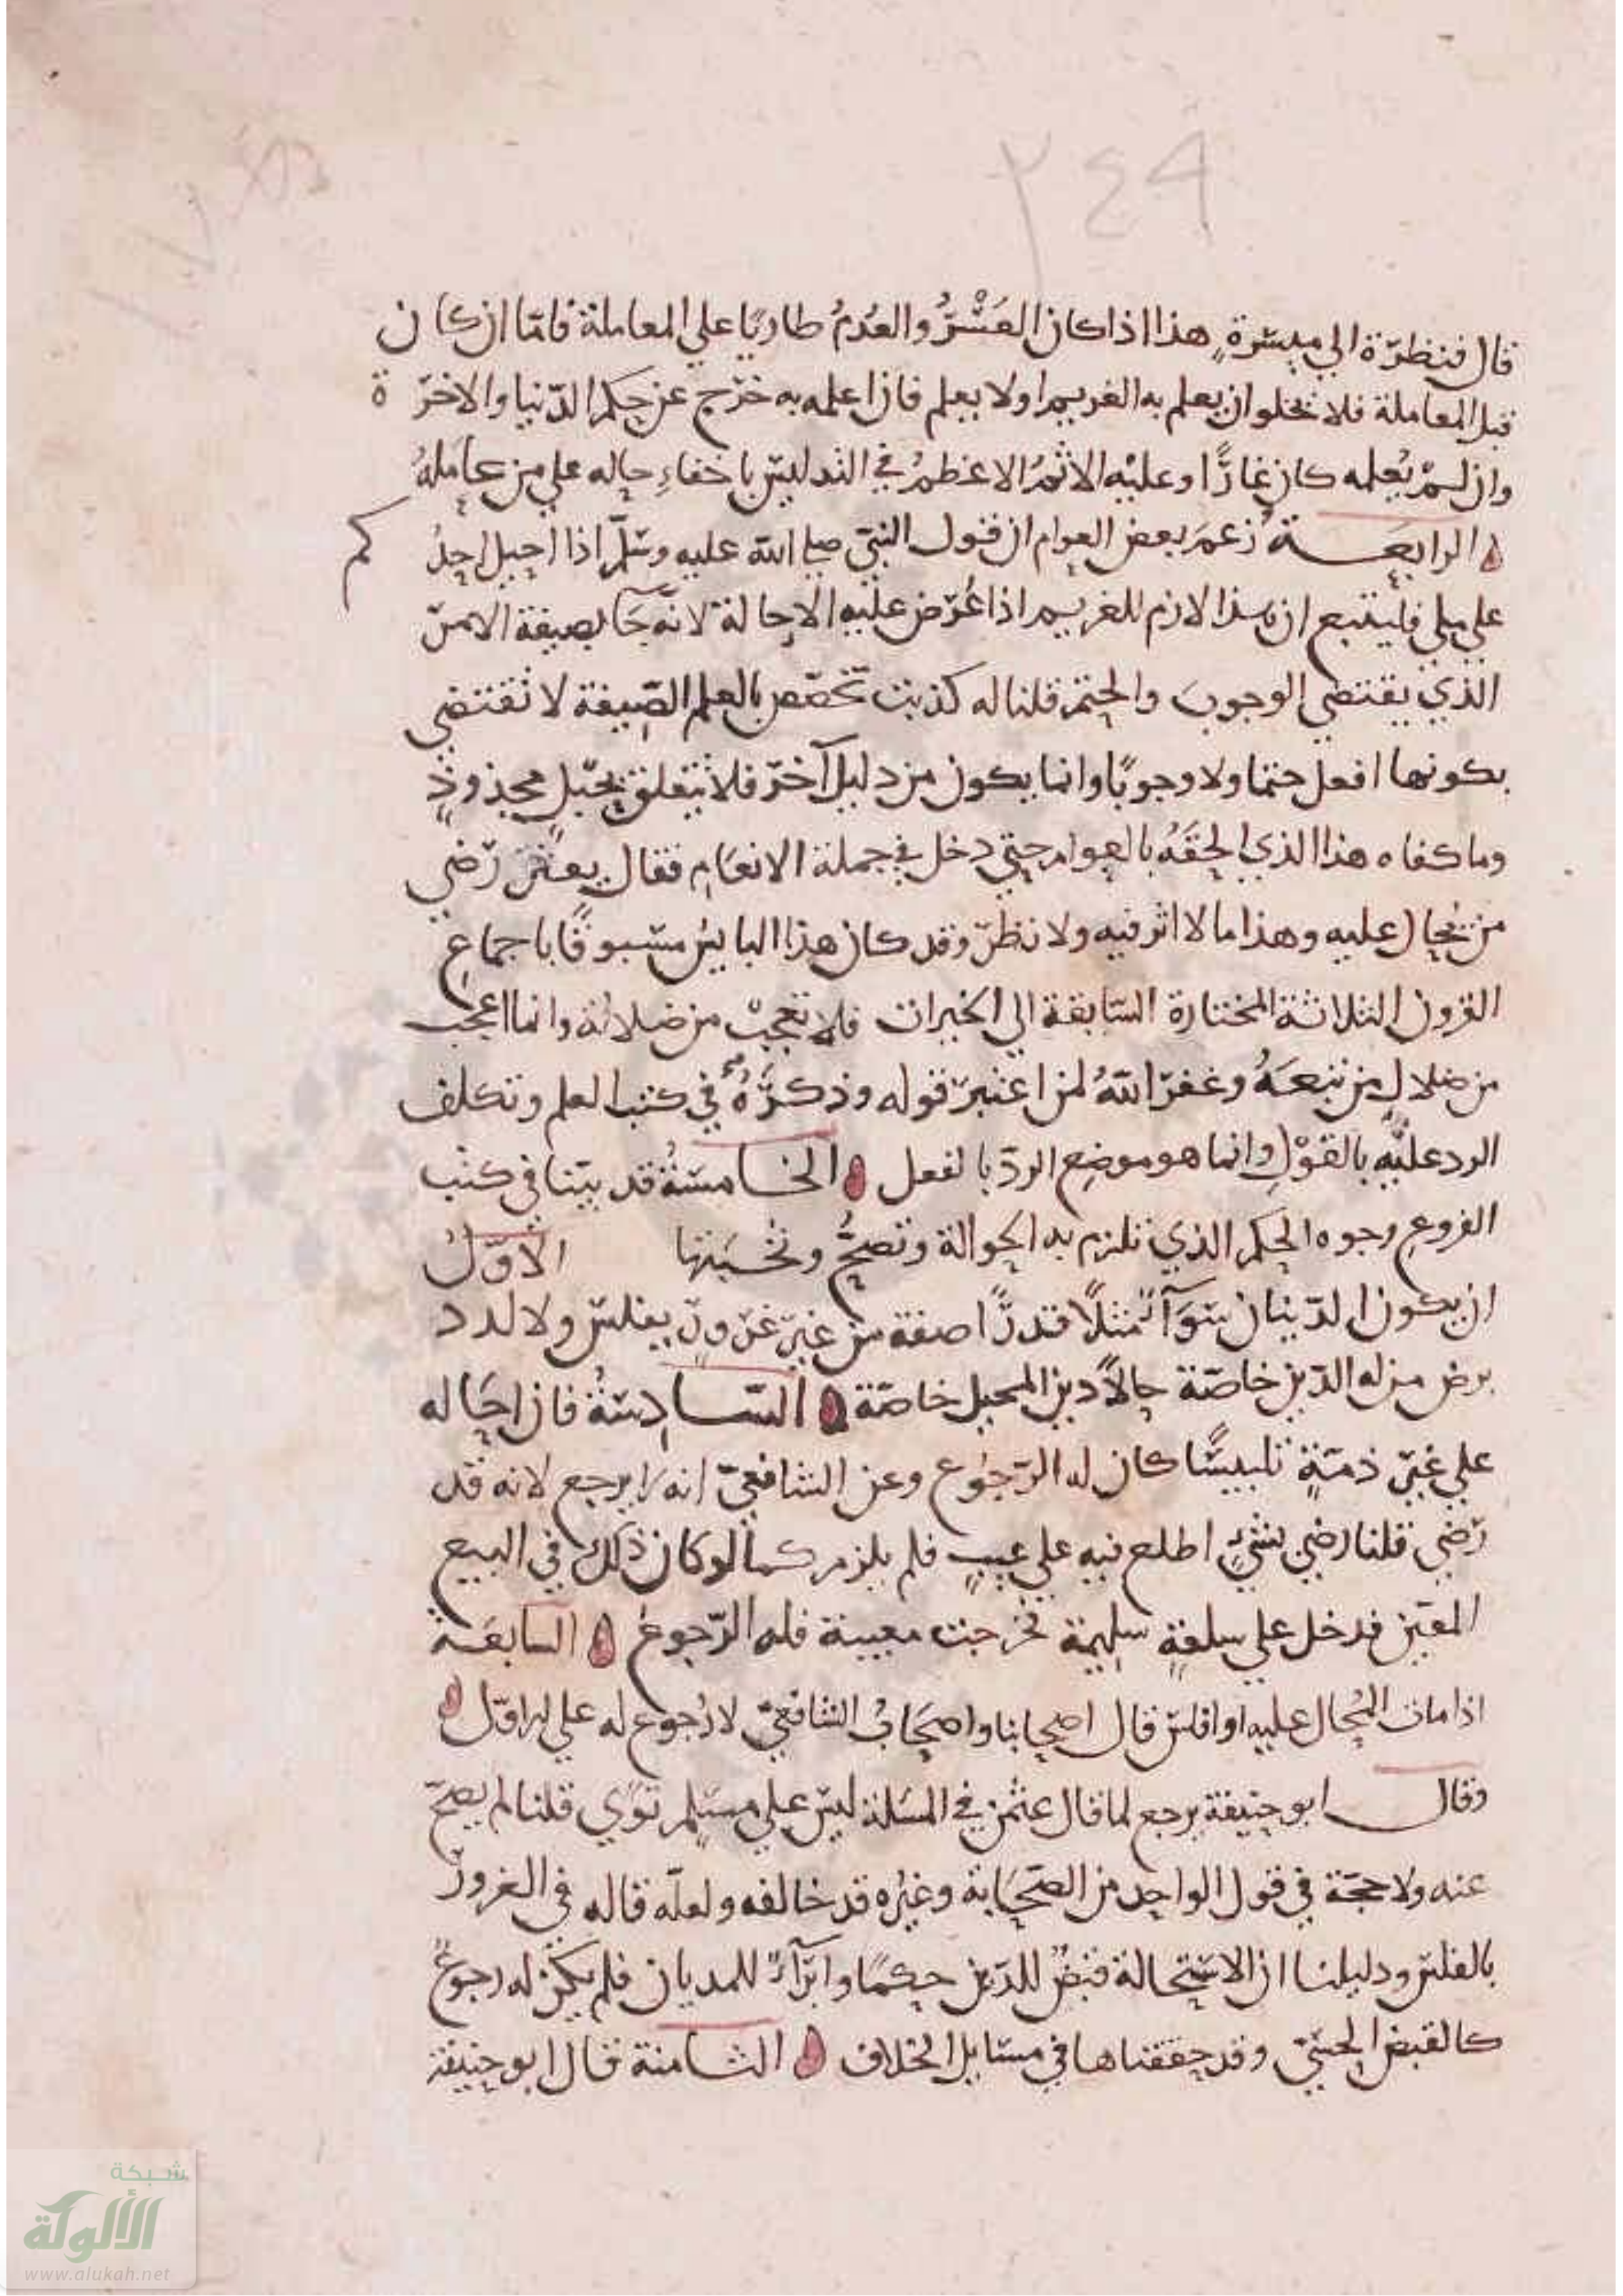 ٢٤٩
قال فنظرة الي ميسرة هذا اذا كان العُسْرُ والعُدْمُ طاريًا علي المعاملة فامّا ان كان
قبل المعاملة فلا يخلو ان يعلم به الغريم او لا يعلم فان اعلمه به خرج عن حكم الدّنيا والاخرة
وان لم يُعلمه كان غارًّا وعليه الاثمُ الاعظمُ في التدليس باخفاءِ حاله علي من عامله
الرابعة زعم بعض العوام ان قول النبيّ صلي الله عليه وسلّم اذا احيل احدكم
علي ملي فليتبع ان هذا لازم للغريم اذا عُرض عليه الاحالة لانّه جا بصيغة الامر
الذي يقتضي الوجوبَ والحتم قلنا له كذبت تخصّص بالعلم الصّيغة لا تقتضي
بكونها افعل حتما ولا وجوبًا وانما يكون من دليل آخر فلا تتعلق بحبلٍ مجذوذٍ
وما كفاه هذا الذي الحقَهُ بالعوام حتي دخل في جملة الانعام فقال يعتبر رضي
من يُحال عليه وهذا ما لا اثر فيه ولا نظر وقد كان هذا البايس مسبوقًا باجماعِ
القرون الثلاثة المختارة السّابقة الي الخيرات فلا تعجبْ من ضلالته وانما اعجب
من ضلالِ من تبعَهُ وغفر اللهُ لمن اعتبر قوله وذكرَهُ في كتب العلم وتكلف
الرد عليه بالقوْلِ وانما هو موضع الردّ بالفعل الخامسةُ قد بيّنا في كتب
الفروعِ وجوه الحكم الذي تلزم به الحوالة وتصحُّ ونُخْبَتها الاوّلُ
ان يكون الدّينان سَوَآءً مثلًا قدرًا صفة من غير غرورٍ بفلس ولا لدد
برضي من له الدّين خاصّة حالًّا دين المحيل خاصّة السّادسةُ فان احاله
علي غير ذمّةٍ تلبيسًا كان له الرّجُوع وعن الشافعيّ انه لا يرجع لانه قد
رَضي قلنا رضي بشيءٍ اطلع فيه علي عيبٍ فلم يلزم كما لو كان ذلك في البيع
المعيّن فدخل علي سلعةٍ سليمة فخرجت معيبة فله الرّجوع السابعة
اذا مات المُحال عليه او افلس قال اصحابنا واصحابُ الشافعيّ لا رُجوع له علي الاوّل
وقال ابو حنيفة يرجع لما قال عثمن في المسَلة ليس علي مسلم تَوًي قلنا لم يصحّ
عنه ولا حجّة في قول الواحد من الصّحَابة وغيرُه قد خالفه ولعلّه قاله في الغرور
بالفلس ودليلنا ان الاستحالة قبضٌ للدّين حكمًا وابرآءٌ للمديان فلم يكن له رجوعٌ
كالقبض الحسّيّ وقد حققناها في مسَايل الخلاف الثامنة قال ابو حنيفة
شبكة
الألوكة
www.alukah.net